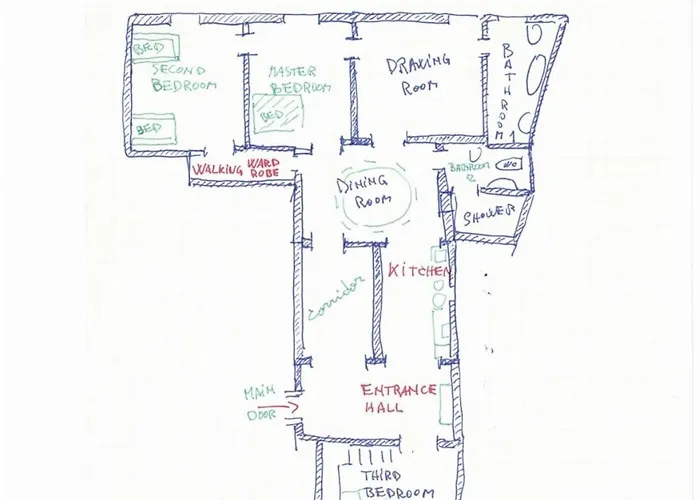 BED
SECOND
BEDROOM
BED
MASTER
BEDROOM
BED
DRAWING
ROOM
BATHROOM 1
WALKING WARD
ROBE
DINING
ROOM
BATHROOM
2
SHOWER
corridor
KITCHEN
MAIN
DOOR
ENTRANCE
HALL
THIRD
BEDROOM